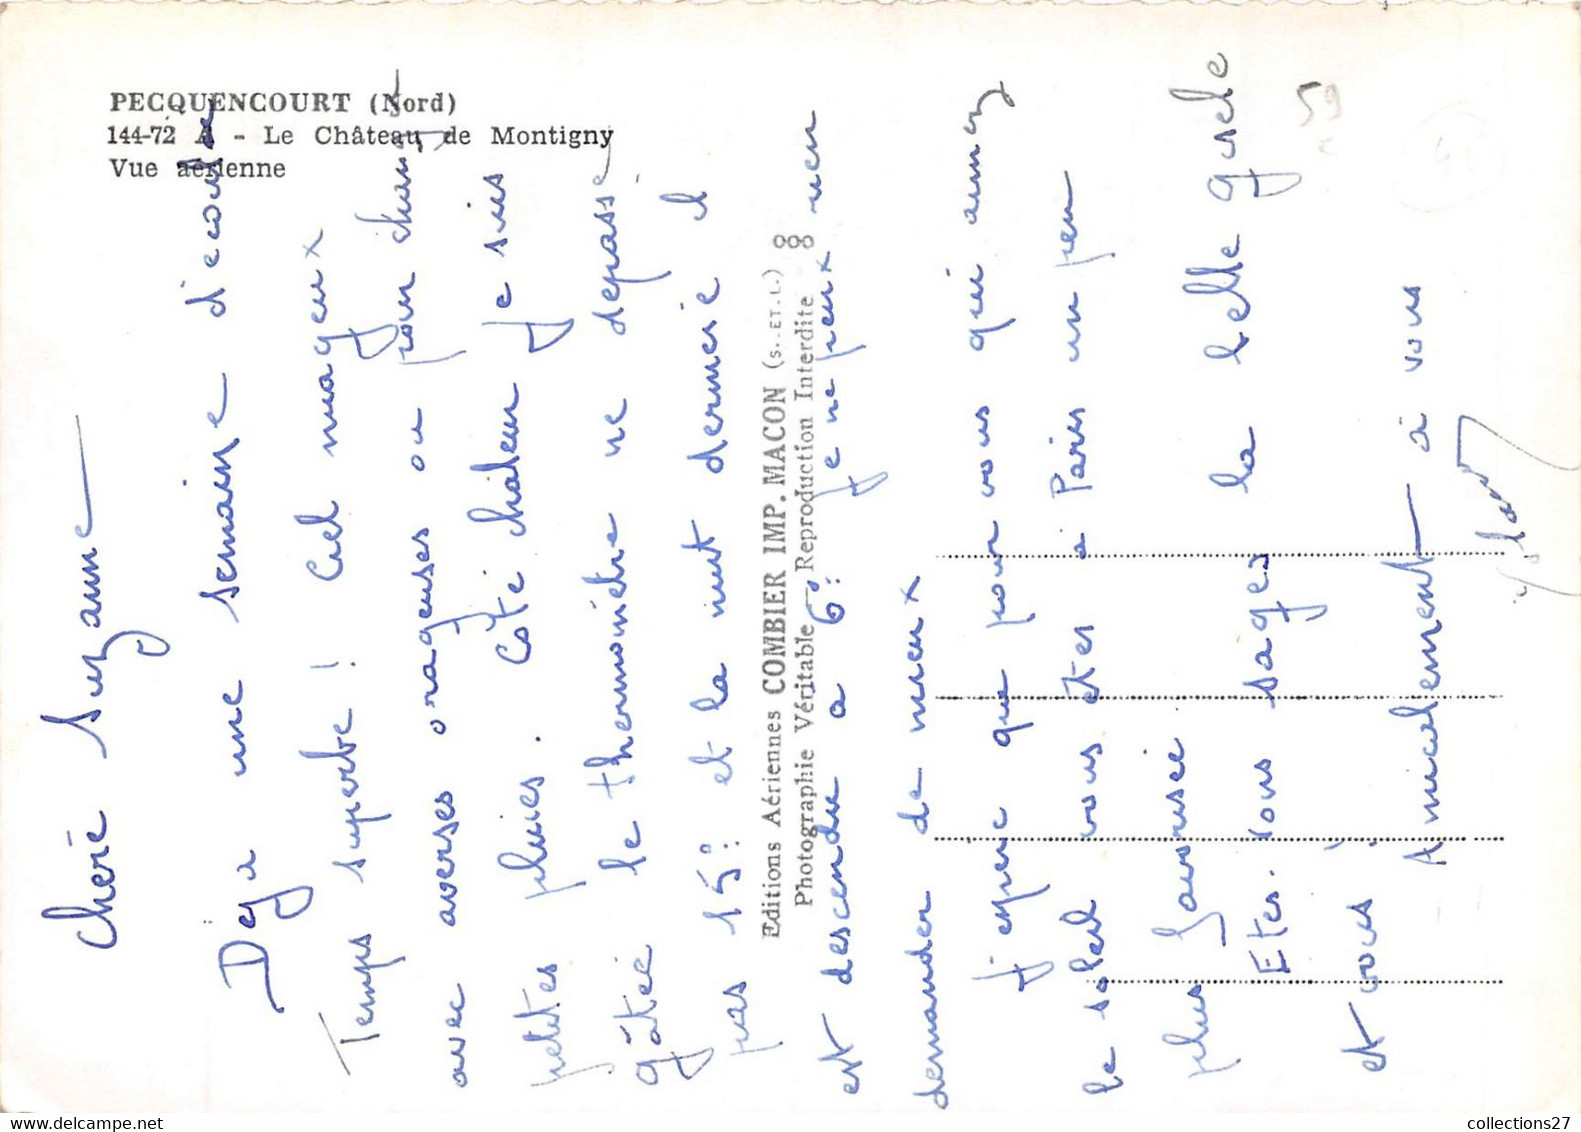 PECQUENCOURT (Nord)
144-72 A - Le Château de Montigny
Vue aérienne
Editions Aériennes COMBIER IMP. MACON (S.-ET-L.)
Photographie Véritable - Reproduction Interdite
59
Cherie Suzanne
Deja une semaine d'ecoulee
Temps superbe ! Ciel nuageux
avec averses orageuses ou pour changer
petites pluies. Côté chaleur je suis
gâtée le thermomètre ne depasse
pas 15° et la nuit derniere il
est descendu a 6° je ne peux rien
demander de mieux
J'espère que pour vous qui aimez
le soleil vous etes a Paris un peu
plus favorisée
Etes. vous sages la belle gisele
et vous ! Amicalement à vous
collections27